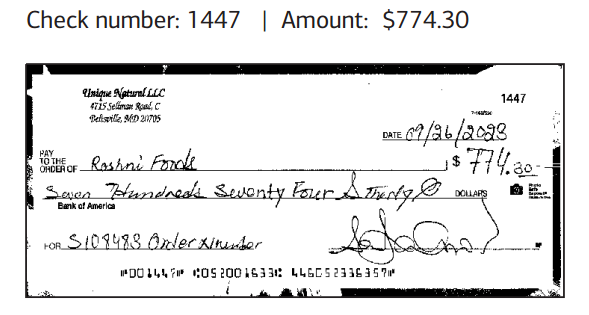 Check number: 1447 | Amount: $774.30
Unique Natural LLC
4715 Sellman Road, C
Beltsville, MD 20705
1447
DATE 09/26/2023
PAY
TO THE
ORDER OF Roshni Foods
$ 774.30
Seven Hundreds Seventy Four & Thirty
DOLLARS
Bank of America
FOR S108483 Order Number
⑈001447⑈ ⑆052001633⑆ 446052336357⑈